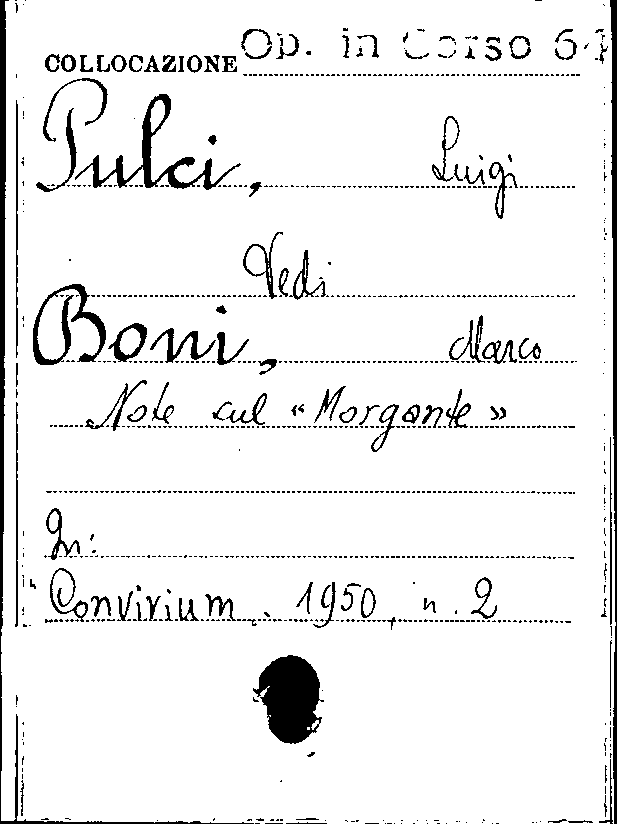 COLLOCAZIONE Op. in Corso 64
Pulci, Luigi
Vedi
Boni, Marco
Note sul «Morgante»
In:
Convivium. 1950, n. 2